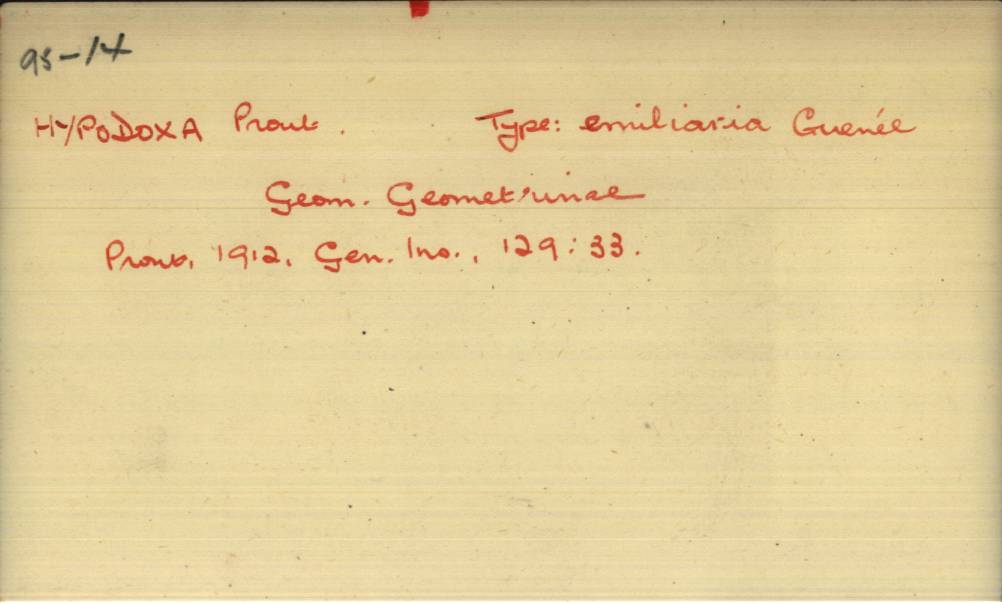 95-14
HYPODOXA Prout. Type: emiliaria Guenée
Geom. Geometrinae
Prout, 1912, Gen. Ins., 129: 33.